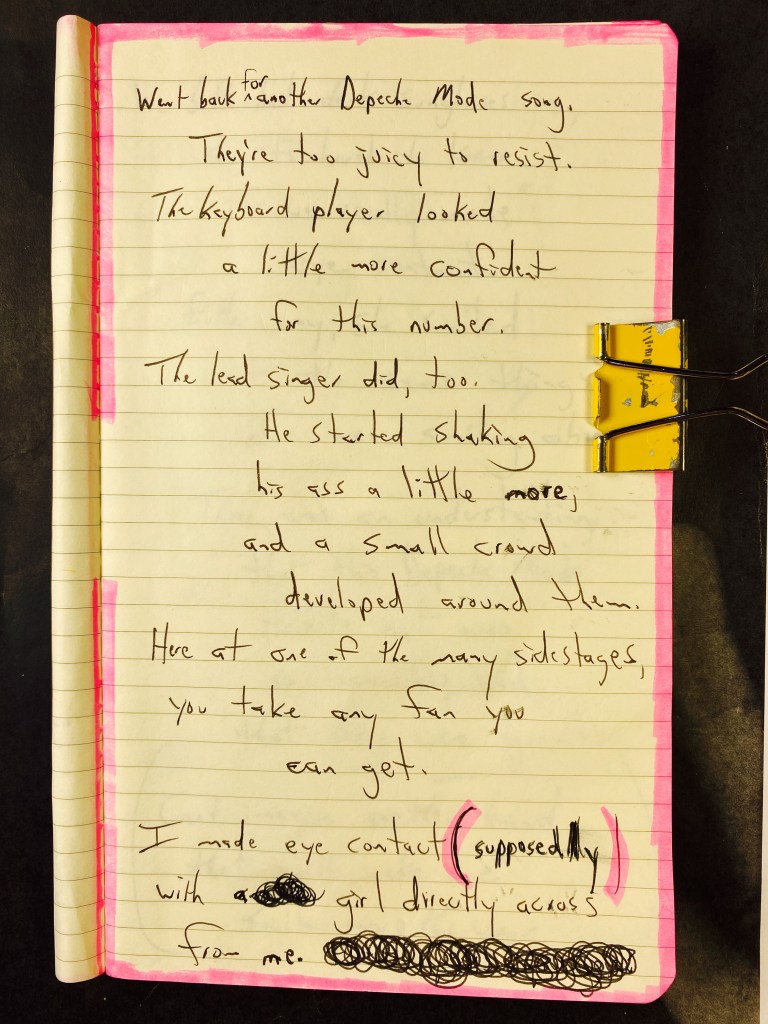 Went back for another Depeche Mode song.
They're too juicy to resist.
The keyboard player looked
a little more confident
for this number.
The lead singer did, too.
He started shaking
his ass a little more,
and a small crowd
developed around them.
Here at one of the many sidestages,
you take any fan you
can get.
I made eye contact (supposedly)
with a girl directly across
from me.